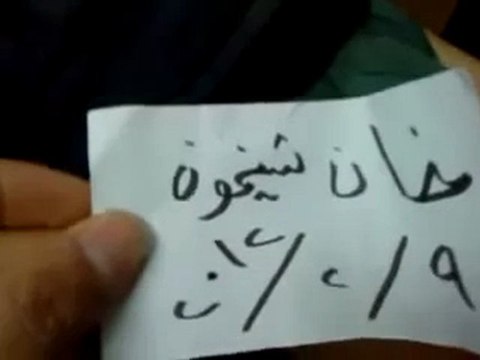 خان شيخون
٩/٢/٢٠١٢